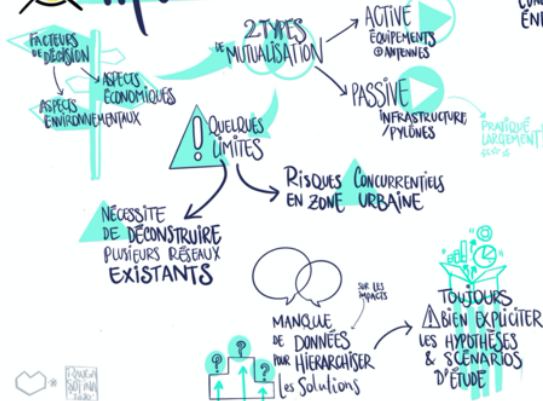 FACTEURS
DE DÉCISION
ASPECTS
ÉCONOMIQUES
ASPECTS
ENVIRONNEMENTAUX
2 TYPES
DE MUTUALISATION
ACTIVE
ÉQUIPEMENTS
+ ANTENNES
PASSIVE
INFRASTRUCTURE/
PYLÔNES
PRATIQUÉ
LARGEMENT!
! QUELQUES
LIMITES
RISQUES CONCURRENTIELS
EN ZONE URBAINE
NÉCESSITE
DE DÉCONSTRUIRE
PLUSIEURS RÉSEAUX
EXISTANTS
SUR LES
IMPACTS
MANQUE
DE DONNÉES
POUR HIÉRARCHISER
Les Solutions
? ? ?
TOUJOURS
! BIEN EXPLICITER
LES HYPOTHÈSES
& SCÉNARIOS
D'ÉTUDE